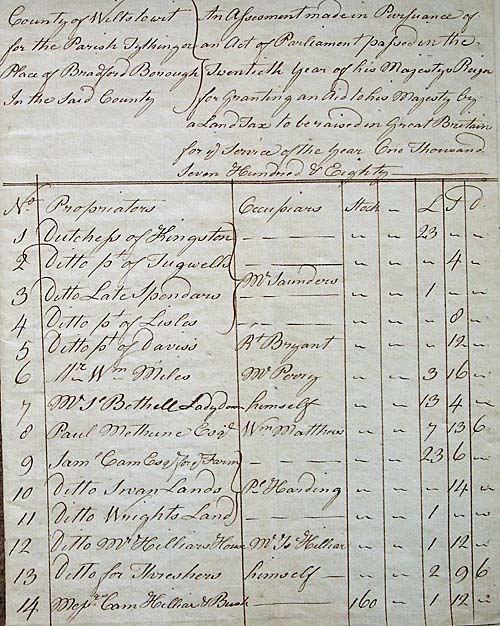 County of Wilts to wit
for the Parish Tything or
Place of Bradford Borough
In the Said County
An Assessment made in Pursuance of
an Act of Parliament passed in the
Twentieth Year of his Majestys Reign
for Granting an Aid to his Majesty by
a Land Tax to be raised in Great Britain
for ye Service of the Year One Thousand
Seven Hundred & Eighty
No Propriators Occupiars Stock L S d
1 Dutchess of Kingston 23
2 Ditto pt of Tugwells 4
Mr Saunders
3 Ditto Late Spendars 1
4 Ditto pt of Lisles 8
5 Ditto pt of Davis's Rt Bryant 12
6 Mr Wm Miles Mr Perry 3 16
7 Mr Js Bethell Ladydown himself 13 4
8 Paul Methuine Esqr Wm Matthews 7 13 6
9 Saml Cam Esqr for Farm 23 6
10 Ditto Swan Lands Harding 14
11 Ditto Wrights Land 1
12 Ditto Mr Hilliars House Mr Js Hilliar 1 12
13 Ditto for Threshers himself 2 9 6
14 Messrs Cam Hilliar & Bush 160 1 12